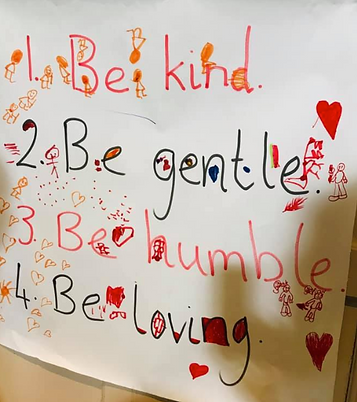 1. Be kind.
2. Be gentle.
3. Be humble.
4. Be loving.